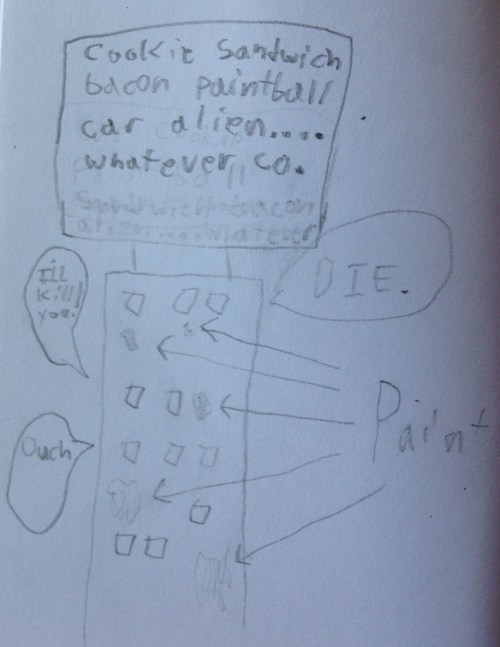 Cookie Sandwich
bacon paintball
car alien....
whatever co.
Sandwich bacon
alien.... whatever
DIE.
I'll
kill
you!
Ouch
Paint